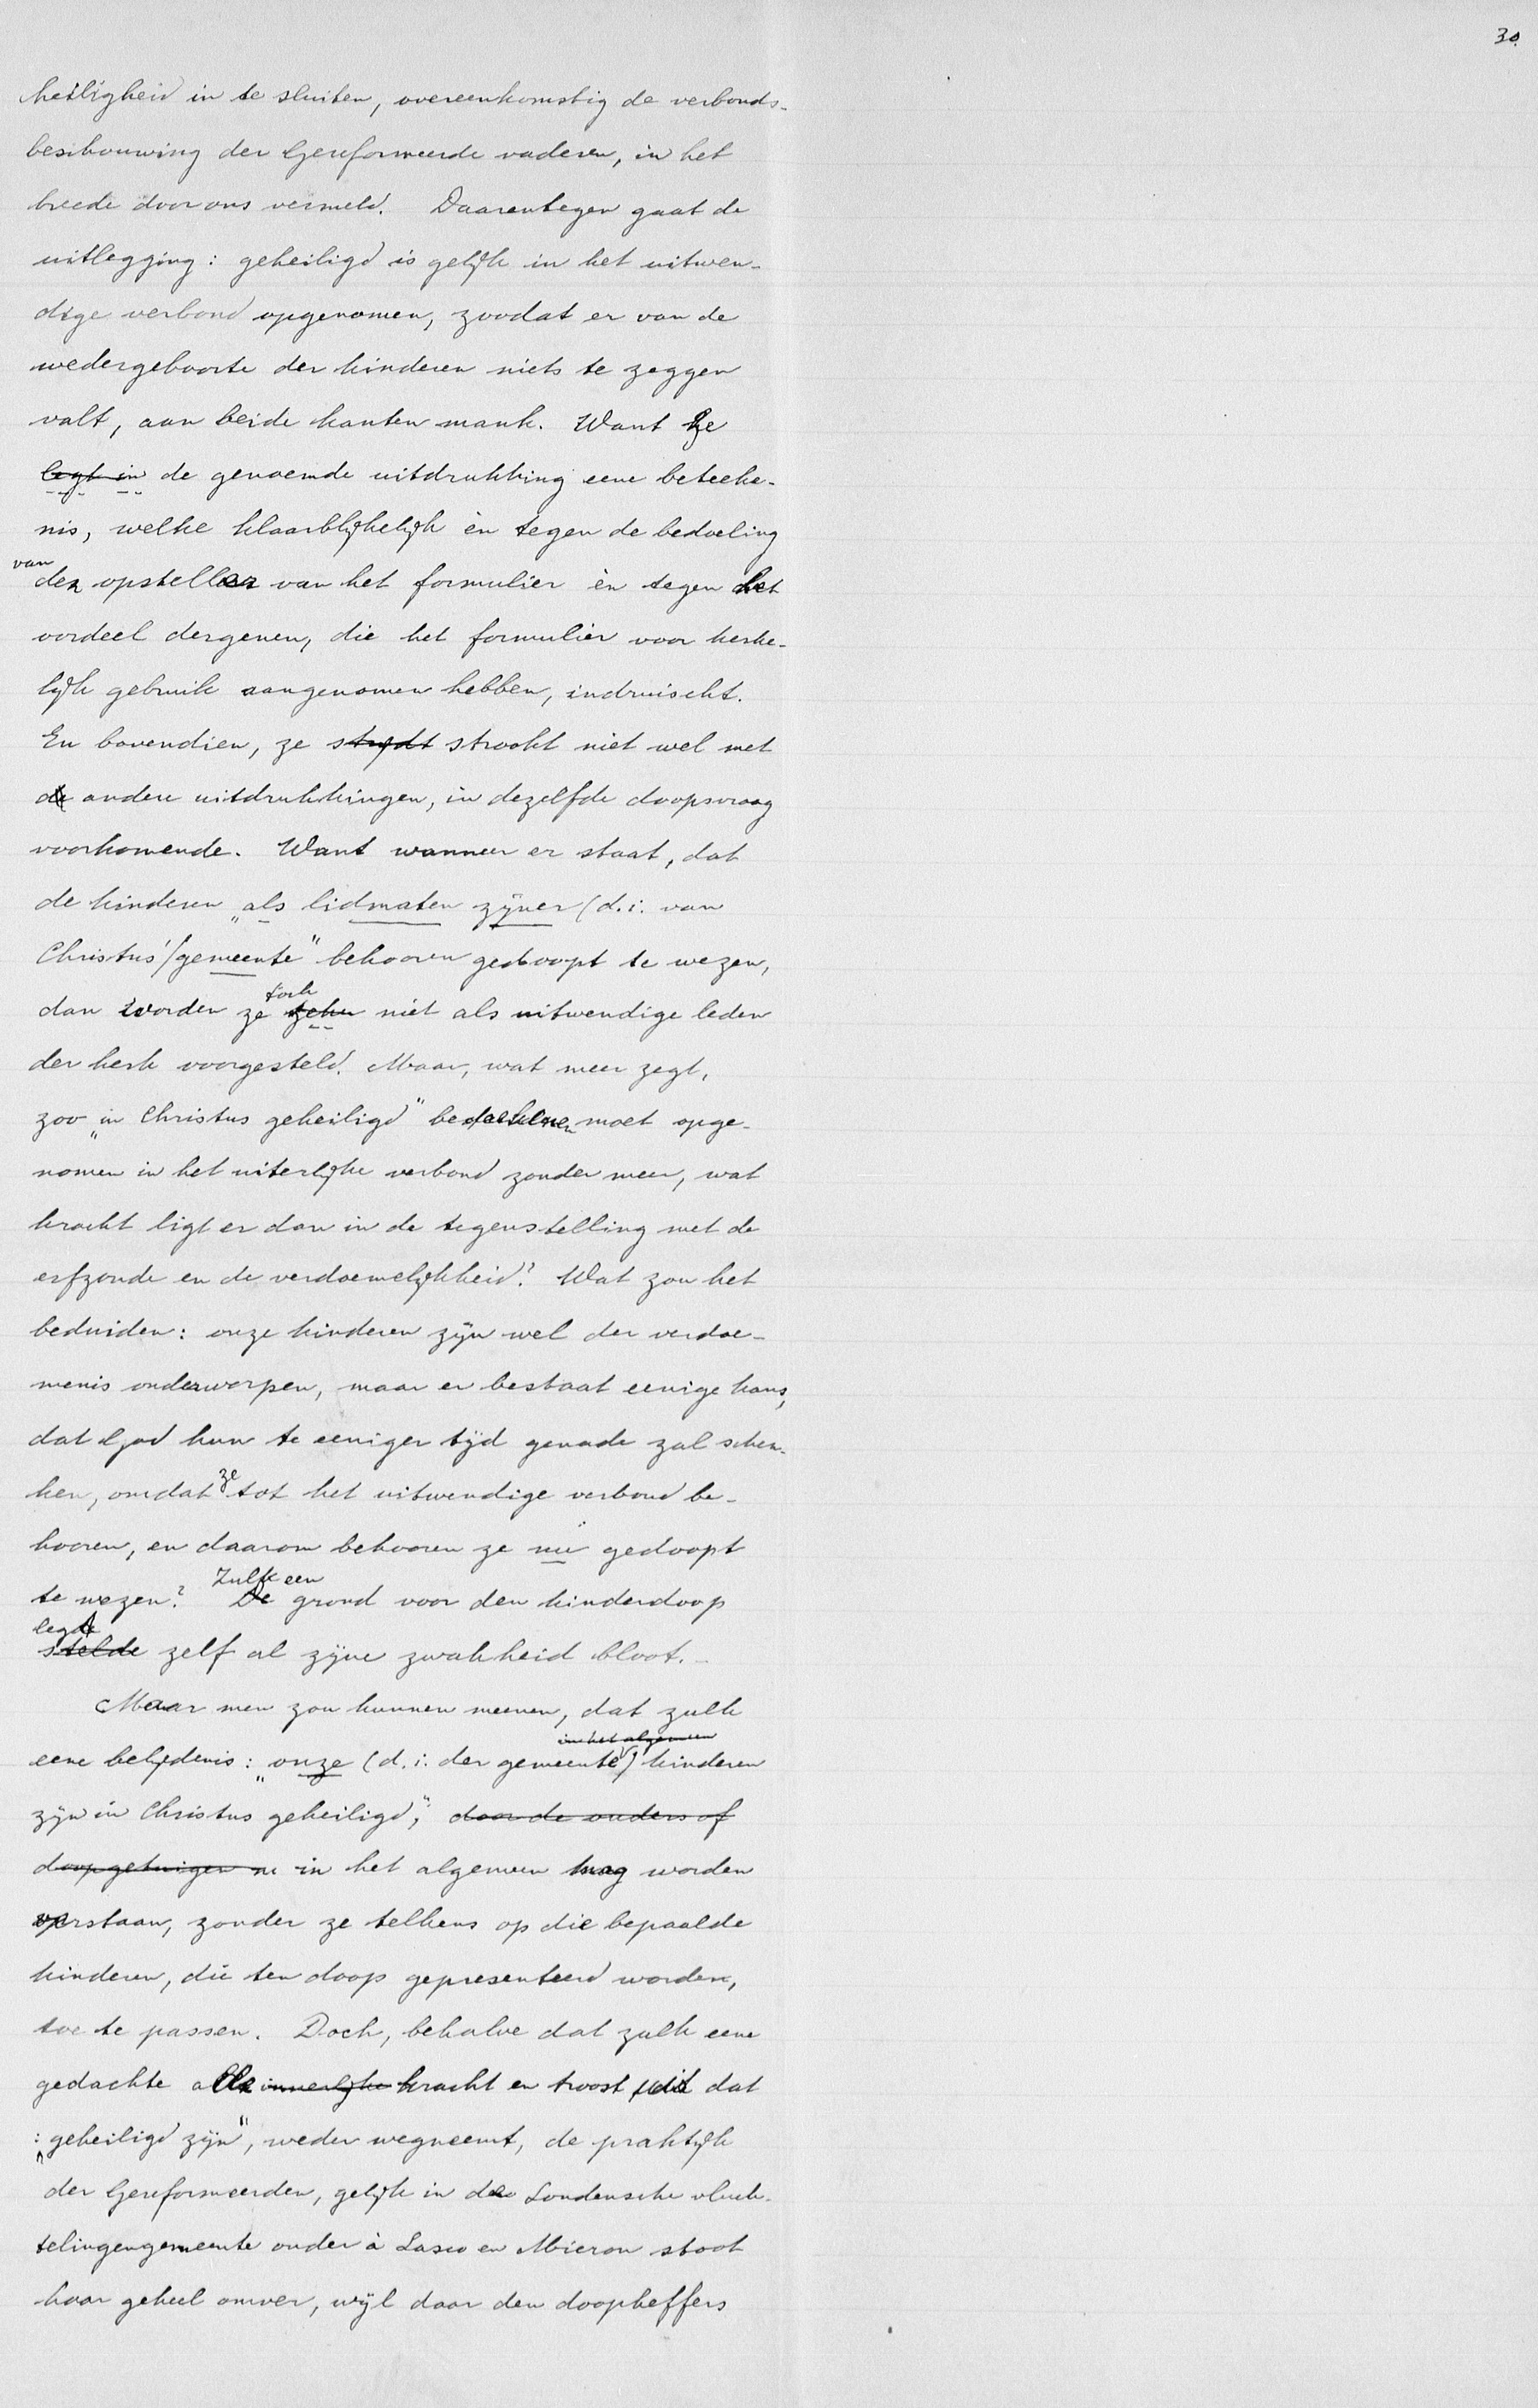 30.
heiligheid in te sluiten, overeenkomstig de verbonds-
beschouwing der Gereformeerde vaderen, in het
breede door ons vermeld. Daarentegen gaat de
uitlegging: geheiligd is gelijk in het uitwen-
dige verbond opgenomen, zoodat er van de
wedergeboorte der kinderen niets te zeggen
valt, aan beide kanten mank. Want ze
legt in de genoemde uitdrukking eene beteeke-
nis, welke klaarblijkelijk èn tegen de bedoeling
van
den opsteller van het formulier èn tegen het
oordeel dergenen, die het formulier voor kerke-
lijk gebruik aangenomen hebben, indruischt.
En bovendien, ze strijdt strookt niet wel met
de andere uitdrukkingen, in dezelfde doopsvraag
voorkomende. Want wanneer er staat, dat
de kinderen „als lidmaten zijner (d.i. van
Christus') gemeente" behooren gedoopt te wezen,
toch
dan worden ze zeker niet als uitwendige leden
der kerk voorgesteld. Maar, wat meer zegt,
zoo „in Christus geheiligd" beteekenen moet opge-
nomen in het uiterlijke verbond zonder meer, wat
kracht ligt er dan in de tegenstelling met de
erfzonde en de verdoemelijkheid? Wat zou het
beduiden: onze kinderen zijn wel der verdoe-
menis onderworpen, maar er bestaat eenige kans,
dat God hun te eeniger tijd genade zal schen-
ze
ken, omdat tot het uitwendige verbond be-
hooren, en daarom behooren ze nu gedoopt
Zulk een
te wezen? De grond voor den kinderdoop
legt
stelde zelf al zijne zwakheid bloot.
Maar men zou kunnen meenen, dat zulk
in het algemeen
eene belijdenis: „onze (d.i. der gemeente) kinderen
zijn in Christus geheiligd," door de ouders of
doopgetuigen in het algemeen mag worden
verstaan, zonder ze telkens op die bepaalde
kinderen, die ten doop gepresenteerd worden,
toe te passen. Doch, behalve dat zulk eene
gedachte alle innerlijke kracht en troost uit dat
: „geheiligd zijn", weder wegneemt, de praktijk
der Gereformeerden, gelijk in de Londensche vluch-
telingengemeente onder à Lasco en Micron stoot
haar geheel omver, wijl daar den doopheffers